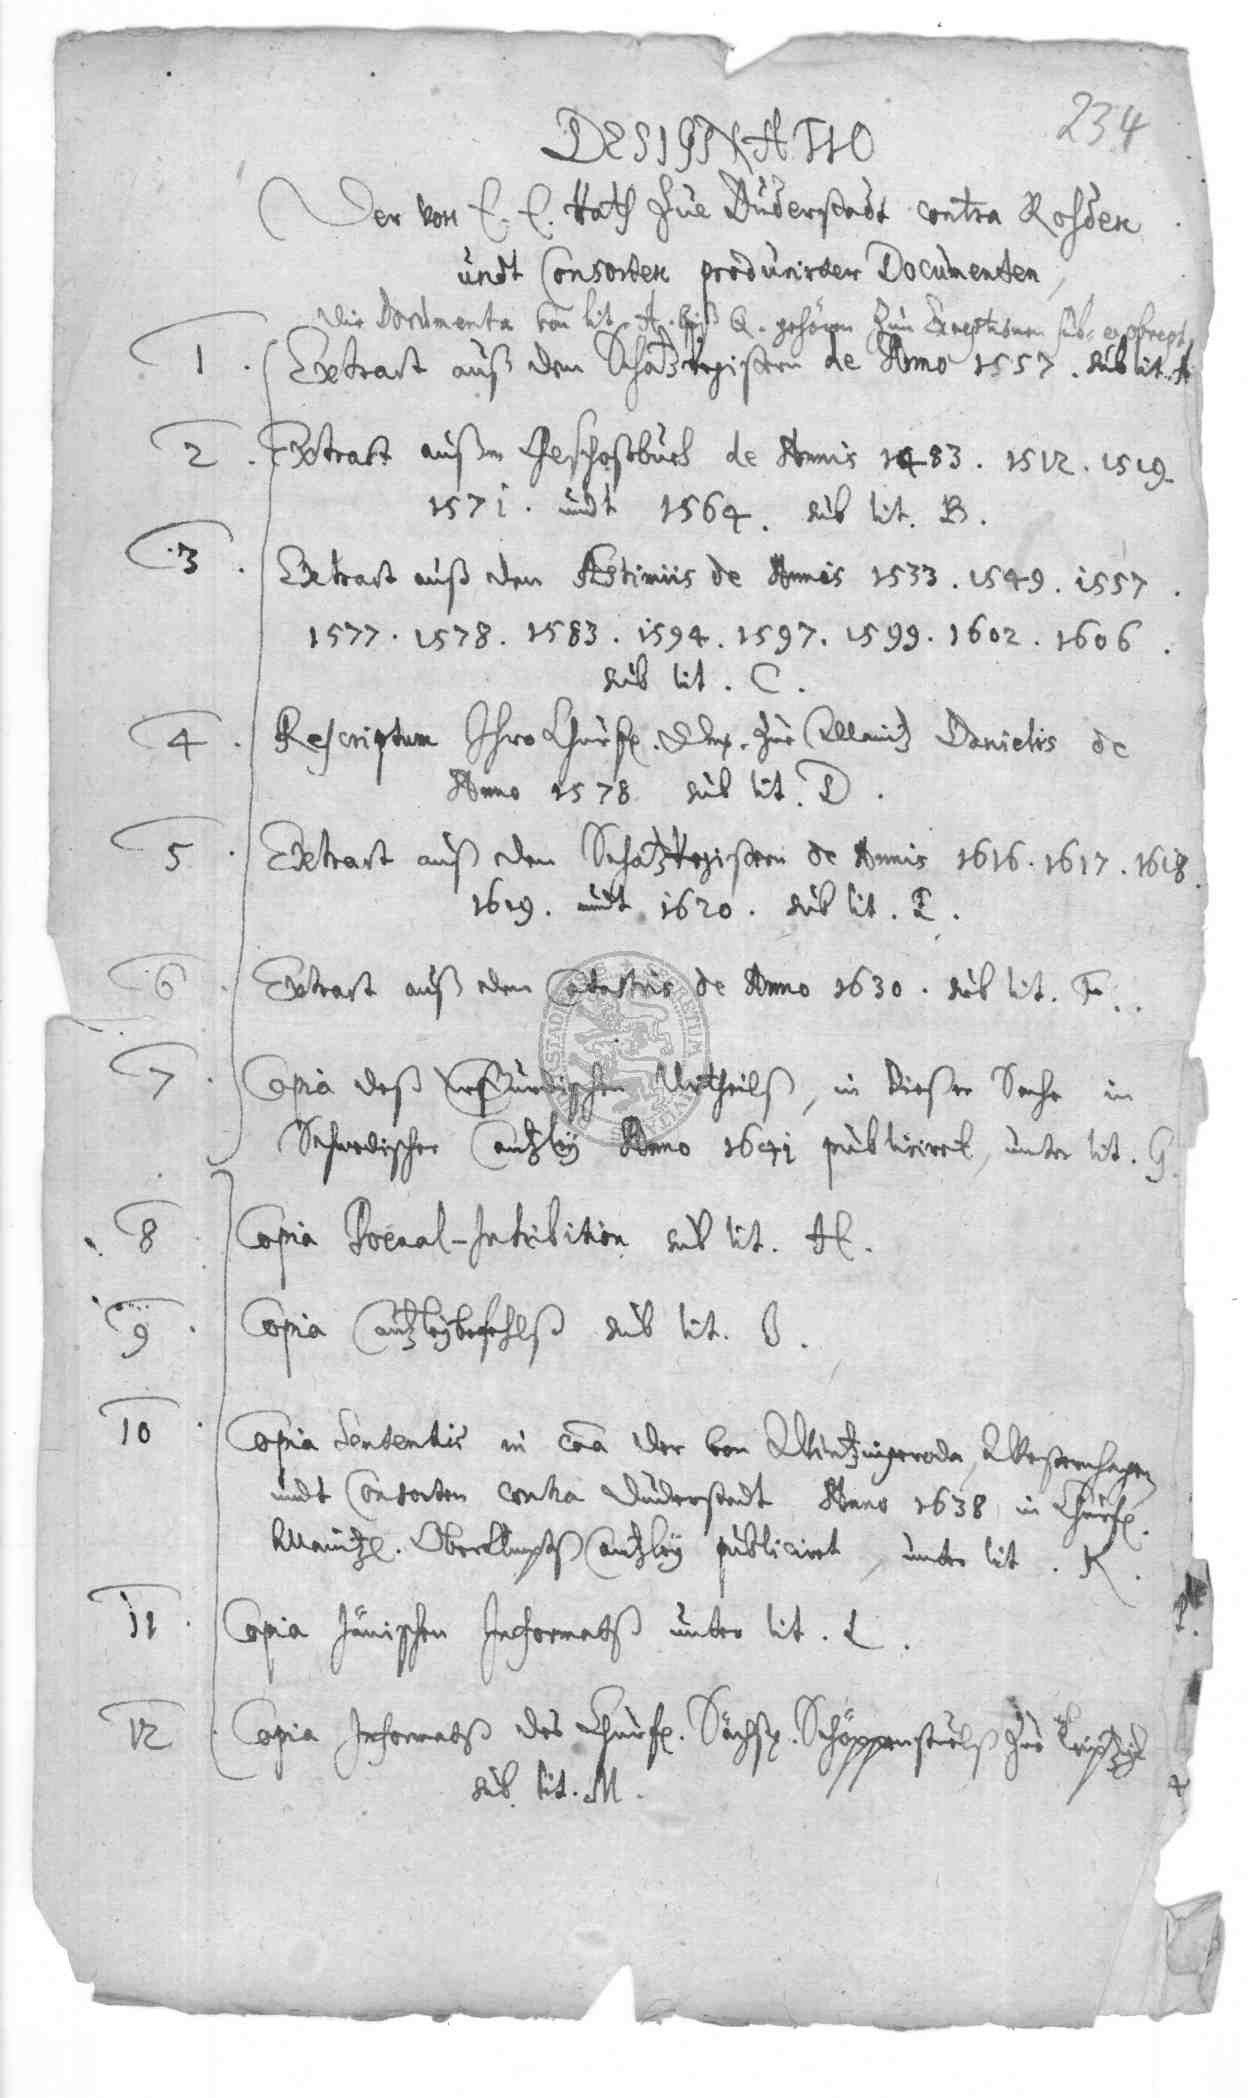 234
DESIGNATIO
Der von E. E. Rath Zue Duderstadt contra Rohden
undt Consorten producirter Documenten,
Die Documenta von lit. A. biß Q. gehören Zun Exceptionen sub- et obrept.
1. Extract auß den Schatzregistern de Anno 1557. sub lit. A
2. Extract außm Geschoßbuch de Annis 1483. 1512. 1519.
1571. undt 1564. sub lit. B.
3. Extract auß den Æstimiis de Annis 1533. 1549. 1557.
1577. 1578. 1583. 1594. 1597. 1599. 1602. 1606.
sub lit. C.
4. Rescriptum Ihro Churf. Zue Maintz Danielis de
Anno 1578 sub lit. D.
5. Extract auß den Schatzregistern de Annis 1616. 1617. 1618.
1619. undt 1620. sub lit. E.
6. Extract auß den Catastris de Anno 1630. sub lit. F.
7. Copia deß Urtheilß, in dieser Sache in
Schwedischer Cantzley Anno 1641 publicirt, unter lit. G.
8. Copia Poenal-Inhibition sub lit. H.
9. Copia Cantzleybefehlß sub lit. I.
10. Copia Sententiæ in caa der von Wintzingeroda, Westernhagen
undt Consorten contra Duderstadt Anno 1638 in Churf.
Maintz. OberAmptß Cantzley publicirt, unter lit. K.
11. Copia Informatß unter lit. L.
12. Copia Informatß des Churf. Sächs. Schöppenstuelß Zue Leipzig
sub lit. M.